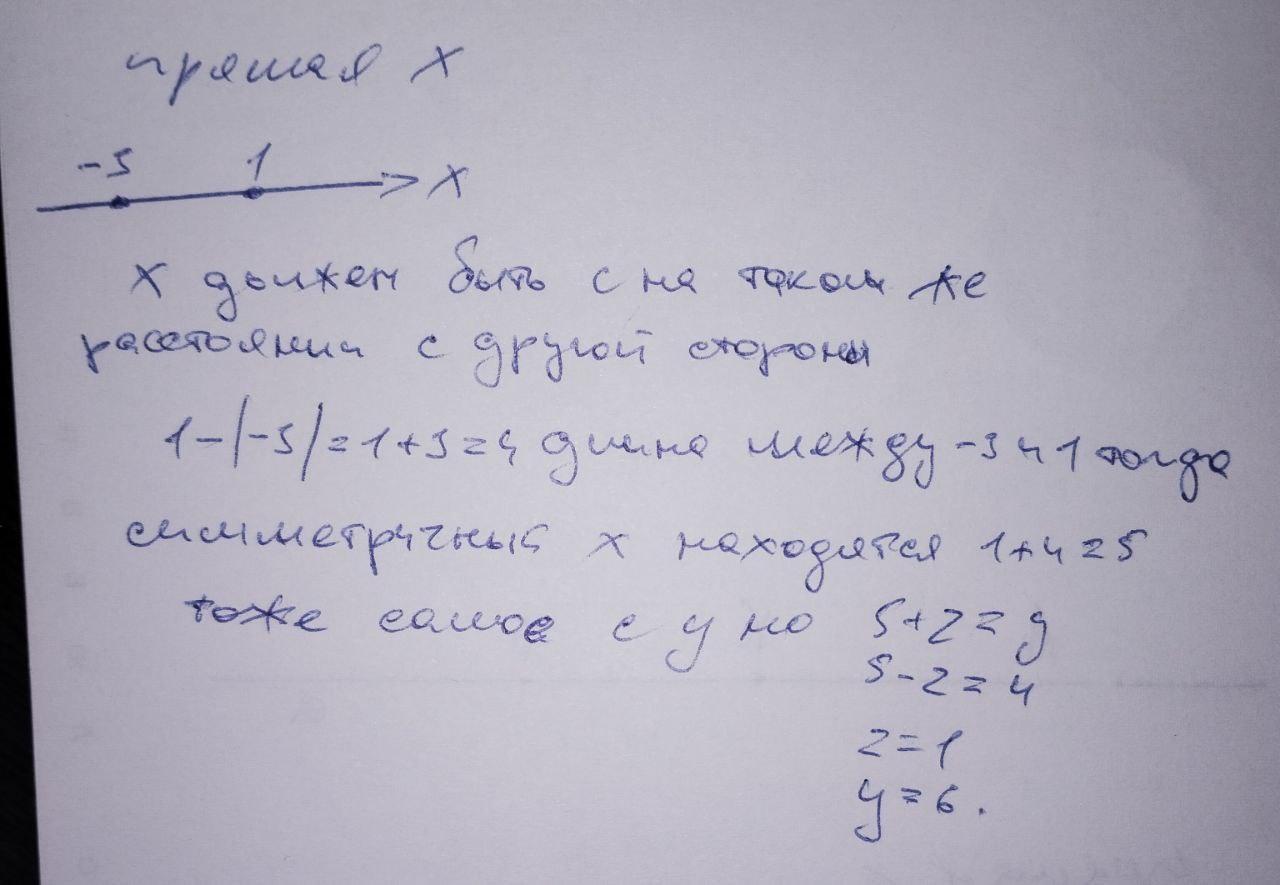 прямая x
-3 1
x
x должен быть с на таком же
расстоянии с другой стороны
1-(-3)=1+3=4 длина между -3 и 1 тогда
симметричный x находится 1+4=5
тоже самое с y но 5+z=y
5-z=4
z=1
y=6.